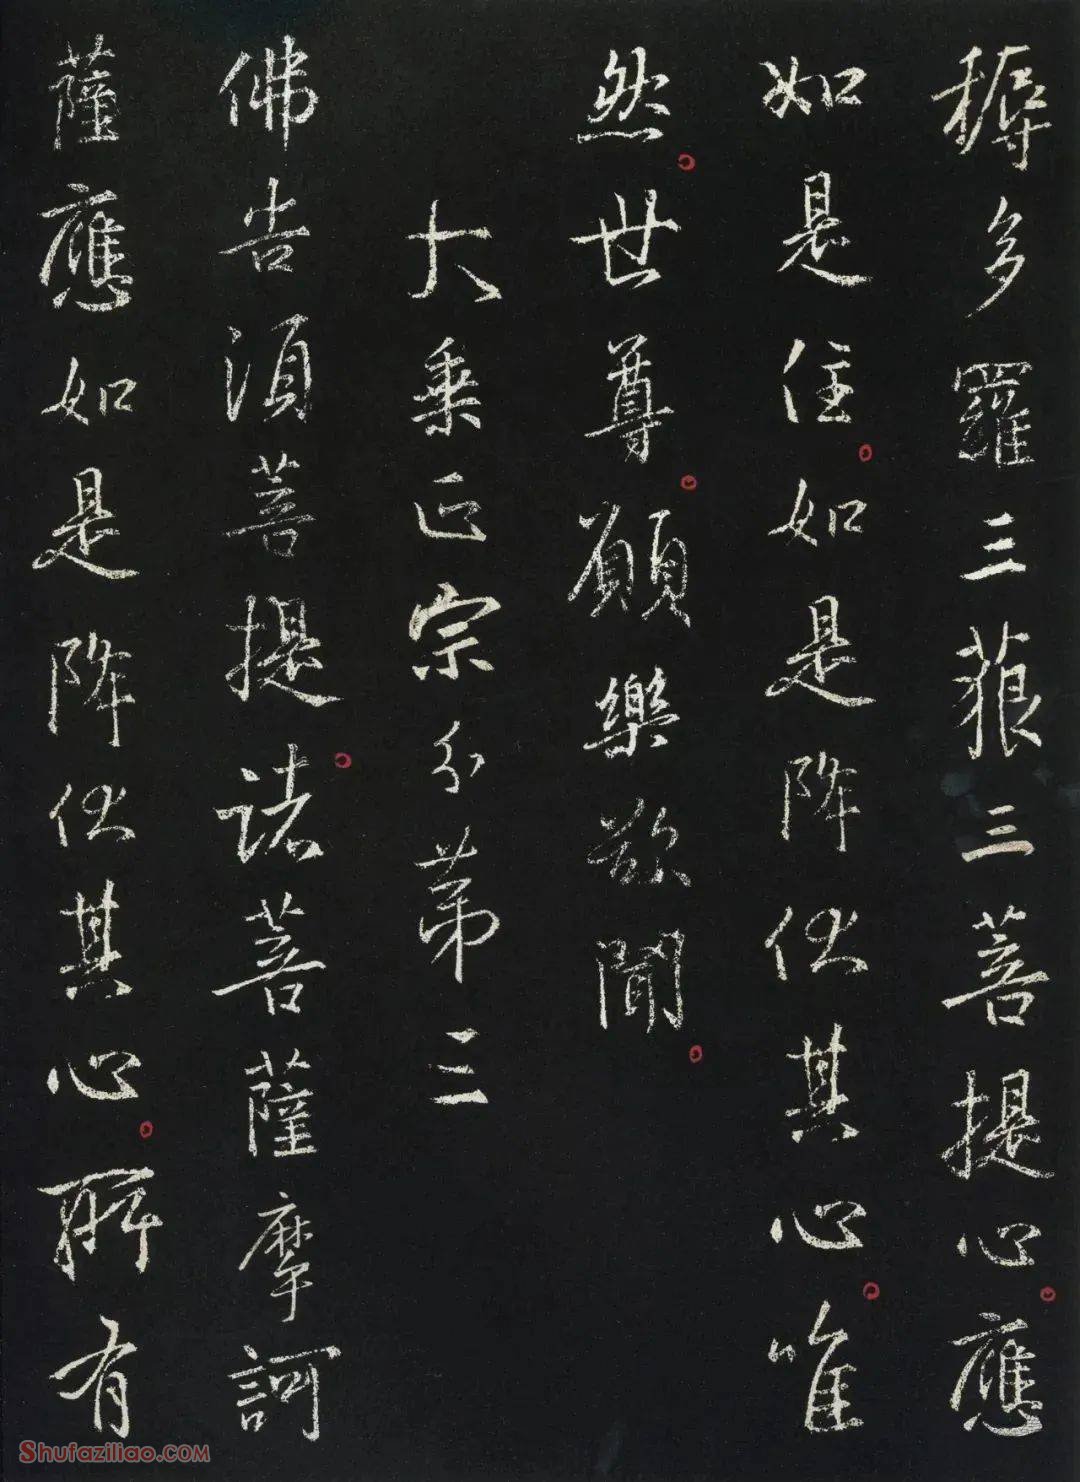 耨多羅三藐三菩提心應
如是住如是降伏其心唯
然世尊願樂欲聞
大乘正宗分第三
佛告須菩提諸菩薩摩訶
薩應如是降伏其心所有
Shufaziliao.com